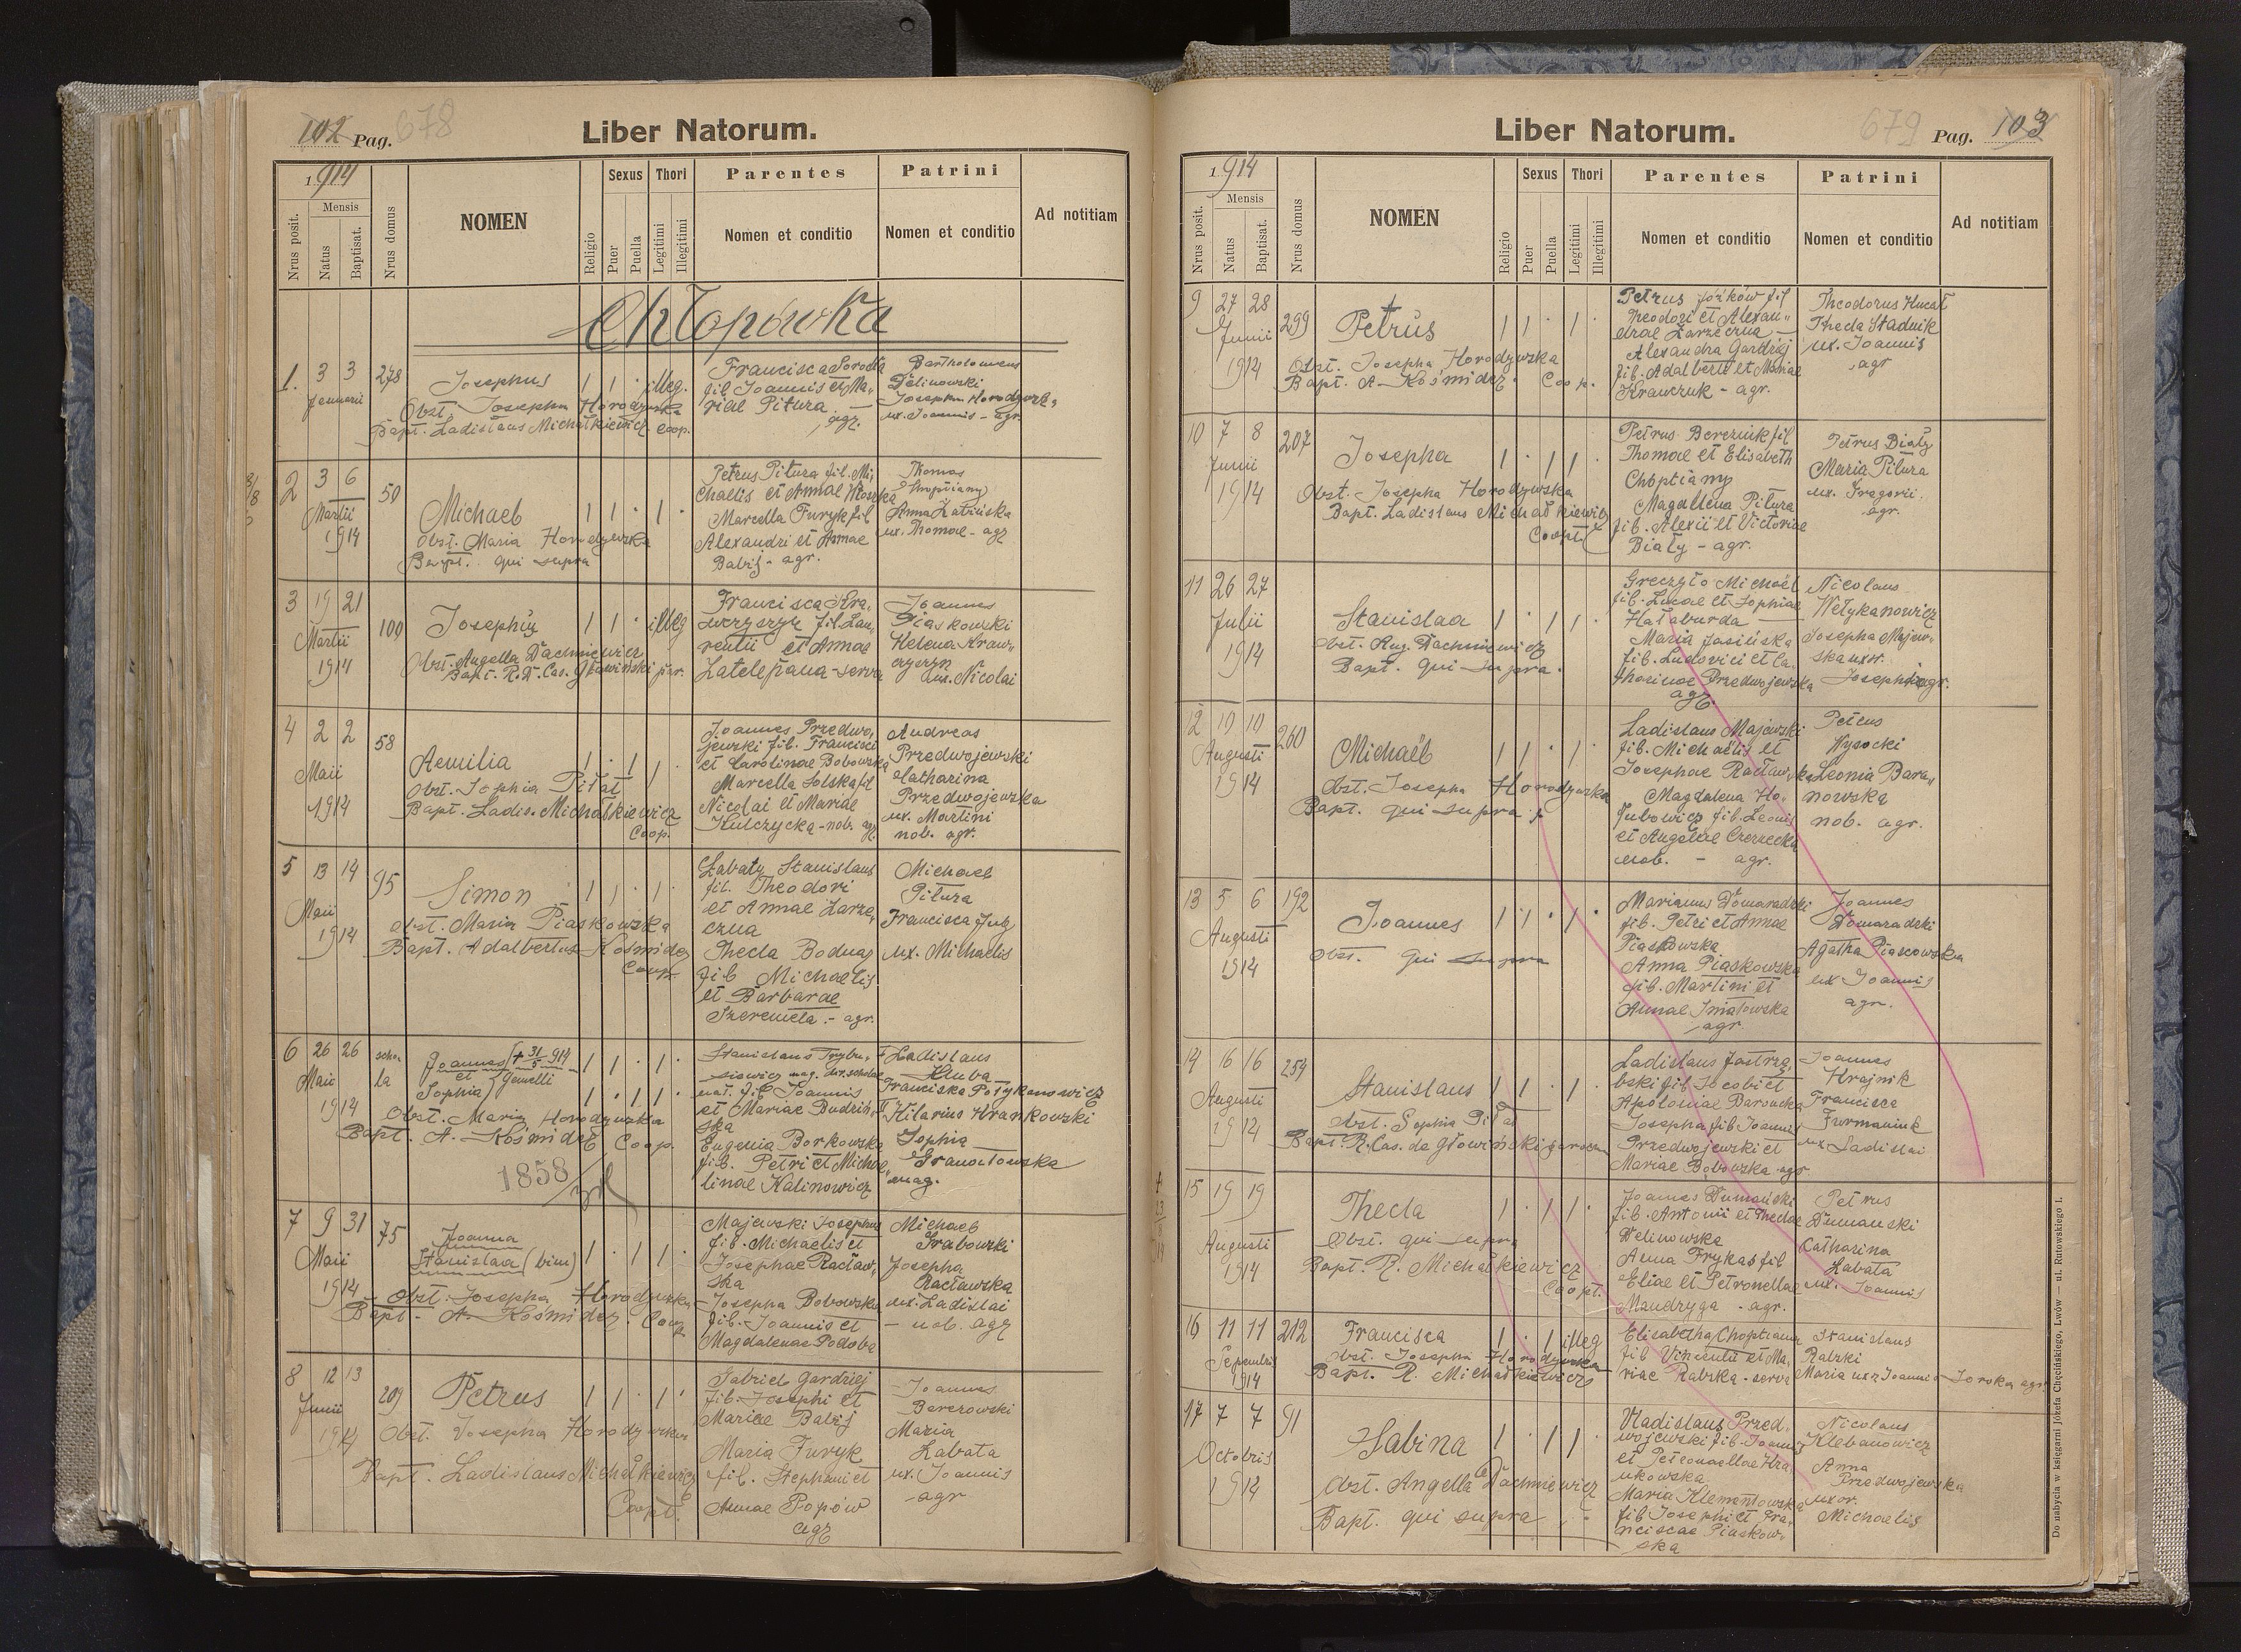 102 Pag. 678
Liber Natorum.
1914
Mensis
Nrus posit.
Natus
Baptisat.
Nrus domus
NOMEN
Religio
Sexus
Puer
Puella
Thori
Legitimi
Illegitimi
Parentes
Nomen et conditio
Patrini
Nomen et conditio
Ad notitiam
Chłopówka
1. 3 3 Januarii 278
Josephus
1 1 · illeg.
Obst. Josepha Horodyska
Bapt. Ladislaus Michałkiewicz coop.
Francisca Soroka
fil Joannis et Ma-
riae Pitura —
agr.
Bartholomeus
Delinowski
Josepha Horodyska
ux. Joannis - agr.
2 3 6 Martii 1914 50
Michael
1 1 · 1 ·
Obst. Maria Horodyska
Bapt. qui supra
Petrus Pitura fil. Mi-
chaelis et Annae
Marcella Furyk fil
Alexandri et Annae
Babij - agr.
Thomas
Anna
ux. Thomae - agr
3 19 21 Martii 1914 100
Josephus
1 1 · illeg
Obst. Angella Dachniewicz
Bapt. R. D. Cas. Głowiński par.
Francisca Kra-
wczyszyn fil Lau-
rentii et Annae
serva
Joannes
Piaskowski
Helena Kraw-
czyszyn
ux. Nicolai
4 2 2 Maii 1914 58
Aemilia
1 · 1 1 ·
Obst. Sophia Piłat
Bapt. Ladis. Michałkiewicz
Coop.
Joannes Przedwo-
jewski fil. Francisci
et Carolinae Bobowska
Marcella Solska fil
Nicolai et Mariae
Kulczycka - nob. agr.
Andreas
Przedwojewski
Catharina
Przedwojewska
ux. Martini
nob. agr.
5 13 14 Maii 1914 95
Simon
1 1 · 1 ·
Obst. Maria Piaskowska
Bapt. Adalbertus Kośmider
Coop.
Łabaty Stanislaus
fil. Theodori
et Annae Zarze-
czna
Thecla Bodnar
fil Michaelis
et Barbarae
Szeremeta - agr.
Michael
Pitura
Francisca
ux. Michaelis
6 26 26 Maii 1914 schola
Joannes + 31/5 914
et gemelli
Sophia
1 1 · 1 ·
1 · 1 1 ·
Obst. Maria Horodyska
Bapt. A. Kośmider Coop.
1858
Stanislaus
nat. fil Joannis
et Mariae Budziń-
ska
Eugenia Borkowska
fil. Petri et Micha-
linae Kalinowicz
Ladislaus
Hluba
Franciska Potykanowicz
Hilarius Krankowski
Sophia
mag.
7 9 31 Maii 1914 75
Joanna
Stanislaa (bin)
1 · 1 1 ·
Obst. Josepha Horodyska
Bapt. A. Kośmider. Coop.
Majewski Josephus
fil. Michaelis et
Josephae Racław-
ska
Josepha Bobowska
fil. Joannis et
Magdalenae Podoba
Michael
Grabowski
Josepha
Racławska
ux. Ladislai
- nob. agr
8 12 13 Junii 1914 209
Petrus
1 1 · 1 ·
Obst. Josepha Horodyska
Bapt. Ladislaus Michałkiewicz
Coopt.
Gabriel Gardziej
fil. Josephi et
Mariae Babij
Maria Furyk
fil. Stephani et
Annae Popów
agr
Joannes
Berezowski
Maria
Łabata
ux. Joannis
- agr
Liber Natorum.
679 Pag. 103
1914
Mensis
Nrus posit.
Natus
Baptisat.
Nrus domus
NOMEN
Religio
Sexus
Puer
Puella
Thori
Legitimi
Illegitimi
Parentes
Nomen et conditio
Patrini
Nomen et conditio
Ad notitiam
9 27 28 Junii 1914 299
Petrus
1 1 · 1 ·
Obst. Josepha Horodyska
Bapt. A. Kośmider. Coop.
Petrus Józków fil
Theodori et Alexan-
drae Zarzeczna —
Alexandra Gardziej
fil. Adalberti et Mariae
Krawczuk - agr.
Theodorus
Thecla Stadnik
ux. Joannis
agr
10 7 8 Junii 1914 207
Josepha
1 · 1 1
Obst. Josepha Horodyska
Bapt. Ladislaus Michałkiewicz
Coopt
Petrus Bereznik fil
Thomae et Elisabeth
Choptiany
Magdalena Pitura
fil. Alexii et Victoriae
Biały - agr.
Petrus Biały
Maria Pitura
ux. Gregorii.
agr.
11 26 27 Julii 1914
Stanislaa
1 · 1 1 ·
Obst. Ang. Dachniewicz
Bapt. qui supra.
Greczyło Michael
fil. Lucae et Sophiae
Hałaburda —
Maria Jasińska
fil. Ludovici et Ca-
tharinae Przedwojewska
agr.
Nicolaus
Wełykanowicz
Josepha Majew-
ska uxor.
Josephi agr.
12 10 10 Augusti 1914 260
Michaël
1 1 · 1 ·
Obst. Josepha Horodyska
Bapt. qui supra
Ladislaus Majewski
fil. Michaëlis et
Josephae Racławska
Magdalena Ho-
łubowicz fil. Leonis
et Angelae Czernecka
nob. - agr.
Petrus
Wysocki
Leonia Bara-
nowska
nob. agr.
13 5 6 Augusti 1914 192
Joannes
1 1 · 1 ·
Obst. qui supra
Marianus Domaradzki
fil. Petri et Annae
Piaskowska
Anna Piaskowska
fil. Martini et
Annae Ignatowska
agr
Joannes
Domaradzki
Agatha Piascowska
ux Joannis
agr.
14 16 16 Augusti 1914 254
Stanislaus
1 1 · 1 ·
Obst. Sophia Piłat
Bapt. R. Cas. de Głowiński paroch
Ladislaus Jastrzę-
bski fil Jacobi et
Apoloniae Barsucka
Josepha fil Joannis
Przedwojewski et
Mariae Bobowska agr.
Joannes
Krajnik
Francisca
Furmaniuk
ux. Ladislai
15 19 19 Augusti 1914
Thecla
1 · 1 1 ·
Obst. qui supra
Bapt. R. Michałkiewicz
Coopt.
Joannes Dumański
fil. Antonii et Theclae
Welinowska
Anna Frykas fil
Eliae et Petronellae
Mandryga - agr.
Petrus
Dumanski
Catharina
Łabata
ux. Joannis
16 11 11 Septembris 1914 212
Francisca
1 · 1 illeg
Obst. Josepha Horodyska
Bapt. R. Michałkiewicz
Elisabetha Choptiana
fil Vincentii et Ma-
riae Rabska - serva
Stanislaus
Rabski
Maria uxr Joannis Soroka agr.
17 7 7 Octobris 1914 91
Sabina
1 · 1 1
Obst. Angella Dachniewicz
Bapt. qui supra
Vladislaus Przed-
wojewski fil. Joannis
et Petronellae Kra-
nkowska
Maria Klementowska
fil Josephi et Fra-
nciscae Piaskow-
ska
Nicolaus
Klebanowicz
Anna
Przedwojewska
uxor.
Michaelis
Do nabycia w księgarni Józefa Chęcińskiego, Lwów — ul. Rutowskiego 1.